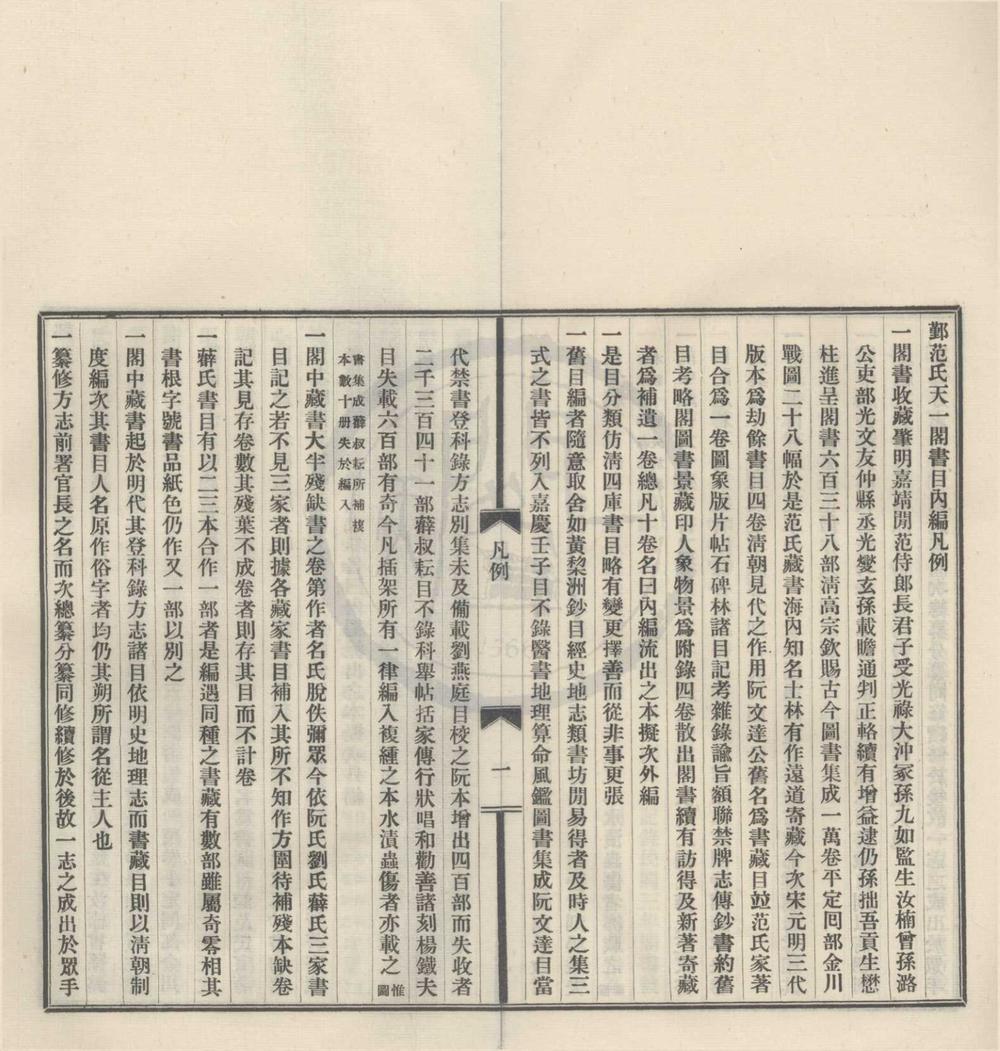 鄞范氏天一閣書目內編凡例
一閣書收藏肇明嘉靖閒范侍郎長君子受光祿大沖冢孫九如監生汝楠曾孫潞
公吏部光文友仲縣丞光燮玄孫載瞻通判正輅續有增益逮仍孫拙吾貢生懋
柱進呈閣書六百三十八部淸高宗欽賜古今圖書集成一萬卷平定囘部金川
戰圖二十八幅於是范氏藏書海內知名士林有作遠道寄藏今次宋元明三代
版本爲劫餘書目四卷淸朝見代之作用阮文達公舊名爲書藏目竝范氏家著
目合爲一卷圖象版片帖石碑林諸目記考雜錄諭旨額聯禁牌志傳鈔書約舊
目考略閣圖書景藏印人象物景爲附錄四卷散出閣書續有訪得及新著寄藏
者爲補遺一卷總凡十卷名曰內編流出之本擬次外編
一是目分類仿淸四庫書目略有變更擇善而從非事更張
一舊目編者隨意取舍如黃棃洲鈔目經史地志類書坊閒易得者及時人之集三
式之書皆不列入嘉慶壬子目不錄醫書地理算命風鑑圖書集成阮文達目當
代禁書登科錄方志別集未及備載劉燕庭目校之阮本增出四百部而失收者
二千三百四十一部薛叔耘目不錄科舉帖括家傳行狀唱和勸善諸刻楊鐵夫
目失載六百部有奇今凡插架所有一律編入複緟之本水漬蟲傷者亦載之惟圖
書集成薛叔耘所補複
本數十册失於編入
一閣中藏書大半殘缺書之卷第作者名氏脫佚彌眾今依阮氏劉氏薛氏三家書
目記之若不見三家者則據各藏家書目補入其所不知作方圍待補殘本缺卷
記其見存卷數其殘葉不成卷者則存其目而不計卷
一薛氏書目有以二三本合作一部者是編遇同種之書藏有數部雖屬奇零相其
書根字號書品紙色仍作又一部以別之
一閣中藏書起於明代其登科錄方志諸目依明史地理志而書藏目則以淸朝制
度編次其書目人名原作俗字者均仍其朔所謂名從主人也
一纂修方志前署官長之名而次總纂分纂同修續修於後故一志之成出於眾手
凡例
一